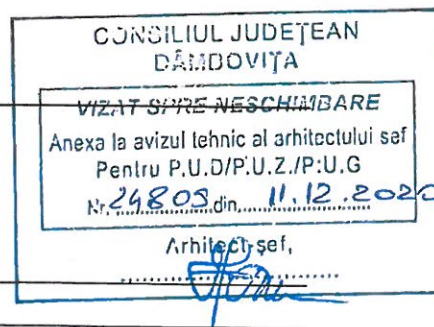 CONSILIUL JUDEȚEAN
DÂMBOVIȚA
VIZAT SPRE NESCHIMBARE
Anexa la avizul tehnic al arhitectului sef
Pentru P.U.D/P.U.Z./P.U.G
Nr. 24809 din 11.12.2020
Arhitect-șef,